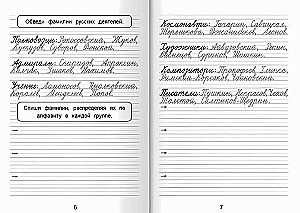 Обведи фамилии русских деятелей.
Полководцы: Рокоссовский, Жуков,
Кутузов, Суворов, Донской.
Адмиралы: Спиридов, Апраксин,
Колчак, Ушаков, Нахимов.
Учёные: Ломоносов, Циолковский,
Королёв, Менделеев, Попов.
Спиши фамилии, распределяя их по
алфавиту в каждой группе.
6
Космонавты: Гагарин, Савицкая,
Терешкова, Джанибеков, Леонов.
Художники: Айвазовский, Репин,
Васнецов, Суриков, Шишкин.
Композиторы: Прокофьев, Глинка,
Римский-Корсаков, Чайковский.
Писатели: Пушкин, Некрасов, Чехов,
Толстой, Салтыков-Щедрин.
7